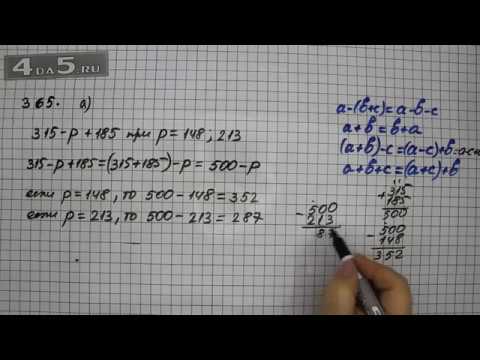 4DA5.RU
365. а)
315-p+185 при p=148; 213
315-p+185=(315+185)-p=500-p
если p=148, то 500-148=352
если p=213, то 500-213=287
a-(b+c)=a-b-c
a+b=b+a
(a+b)-c=(a-c)+b
a+b+c=(a+c)+b
+315
185
500
-500
148
352
-500
213